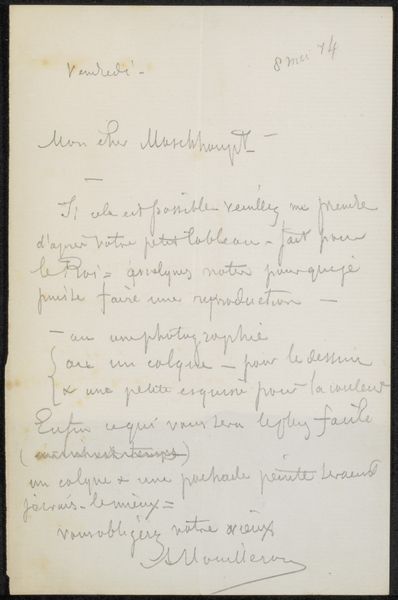 Vendredi -
8 mei 74
Mon cher Mesckhoupt -
Si cela est possible veuillez me prendre
d'après votre petit tableau - fait pour
le Roi = quelques notes pour que je
puisse faire une reproduction -
- ou une photographie
ou un calque - pour le dessin
& une petite esquisse pour la couleur
Enfin ce qui vous sera le plus facile
un calque & une pochade peinte seraient
je crois - le mieux =
vous obligerez votre vieux
A Mouilleron